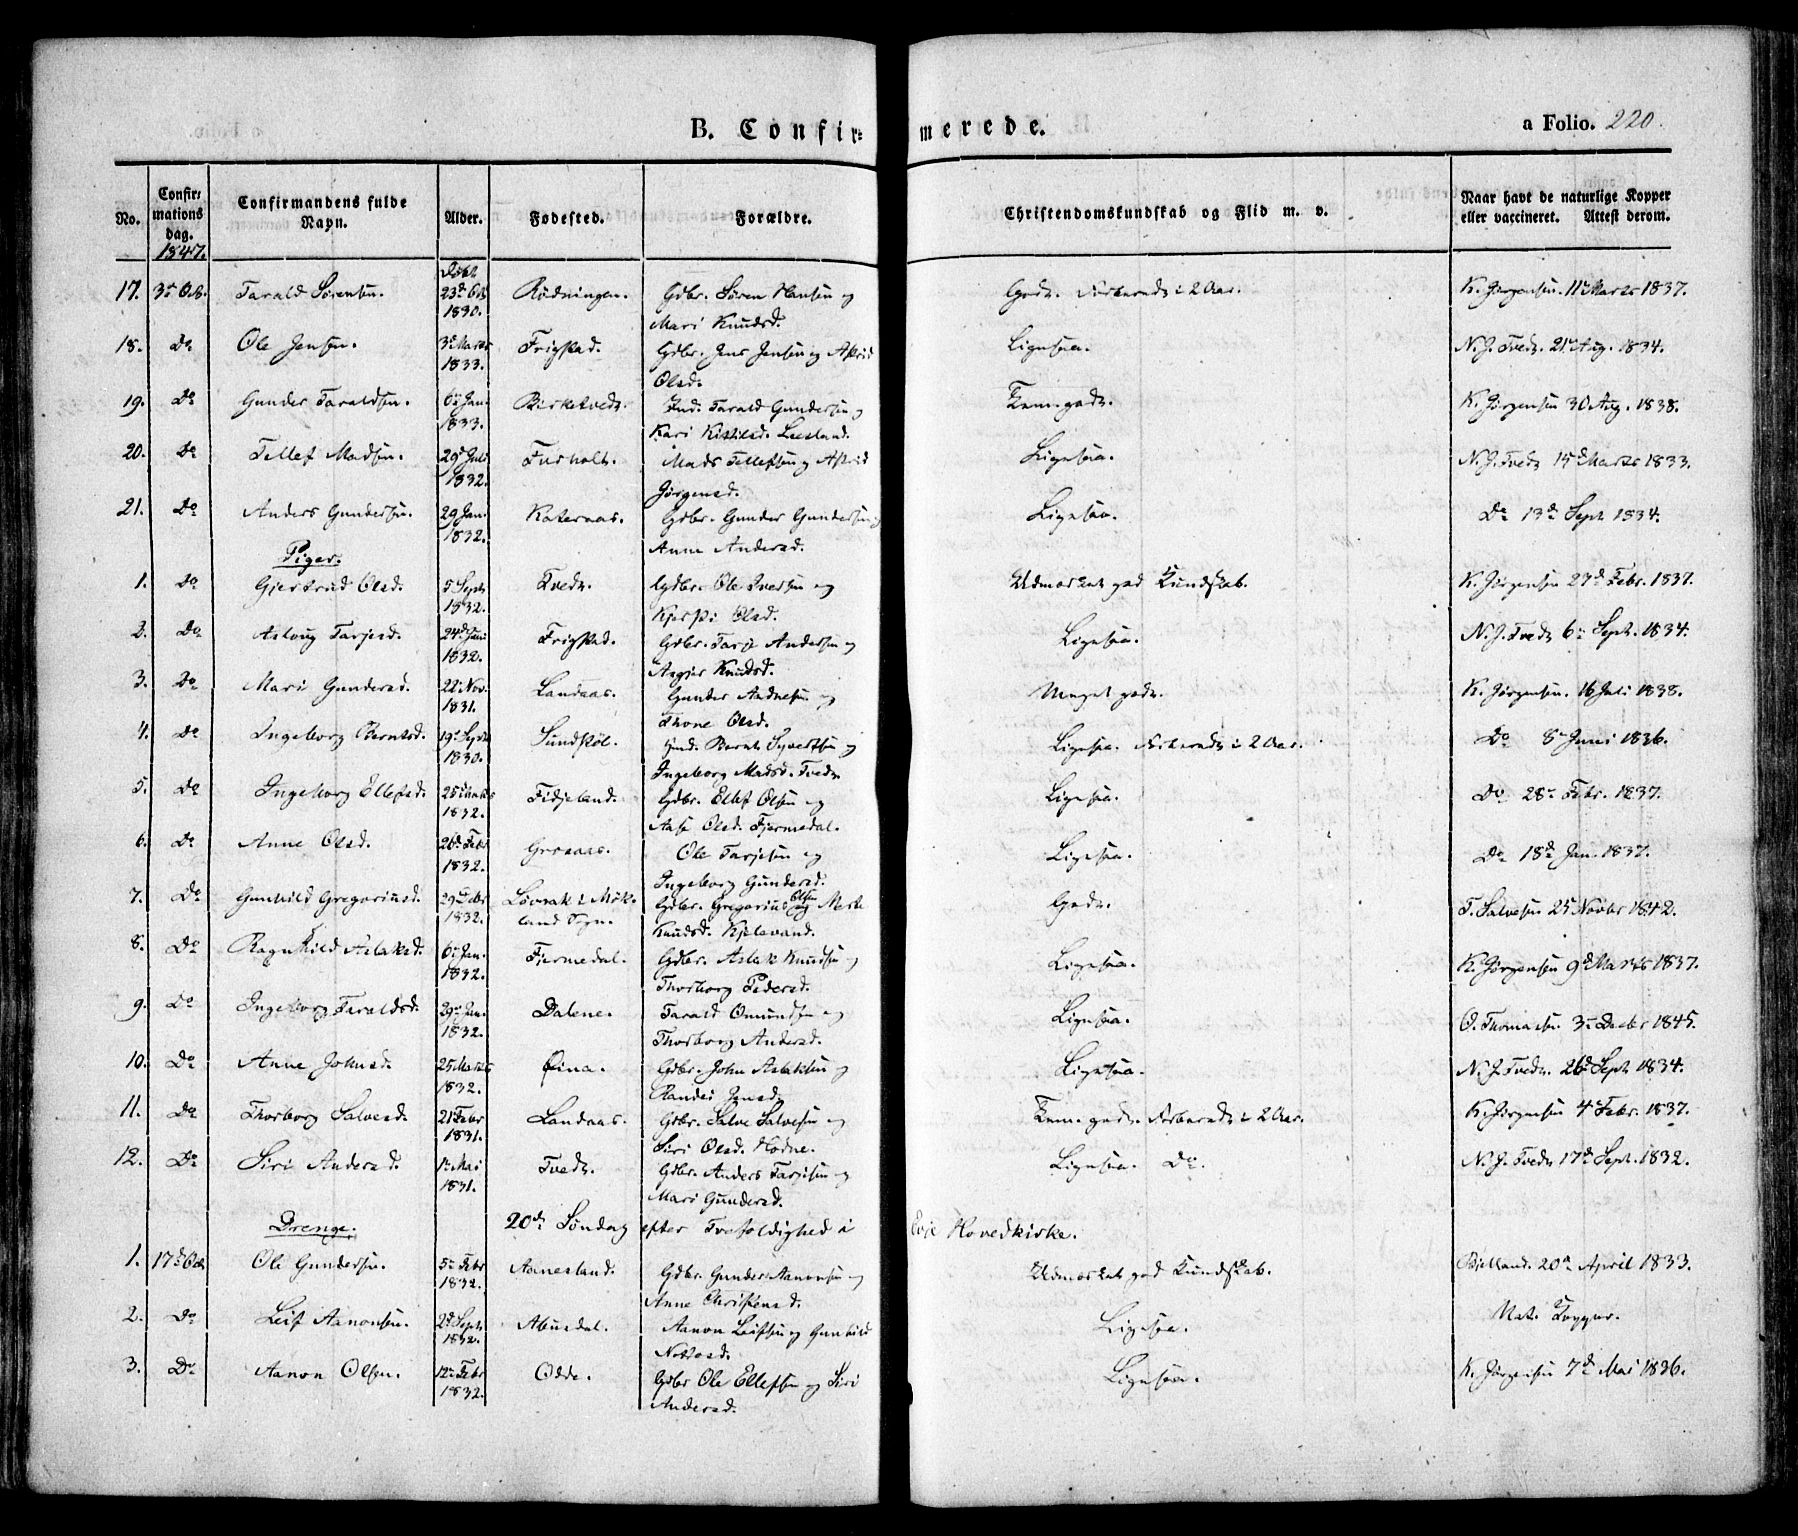 B. Confir= merede.
a Folio. 220.
No. Confir= mations dag. 1847. Confirmandens fulde Navn. Alder. Fødested. Forældre. Christendomskundskab og Flid m. v. Naar havt de naturlige Kopper eller vaccineret. Attest derom.
17. 3die Oct. Tarald Sørensen. Døbt 23de Oct. 1830. Rødningen. Gdbr. Søren Hansen og Godt. Forberedt i 2 Aar. K. Jørgensen. 11te Marts 1837.
Mari Knudsd.
18. Do Ole Jensen. 3die Marts 1833. Frigstad. Gdbr. Jens Jensen og Astrid Ligesaa. N. J. Tvedt. 21de Aug. 1834.
Olsd.
19. Do Gunder Taraldsen. 6te Jan. 1833. Birketvedt. Ind. Tarald Gundersen og Temmegodt. K. Jørgensen 30 Aug. 1838.
Kari Kittilsd. Leesland.
20. Do Tellef Madsen. 29de Juli 1832. Furholt. Mads Tellefsen og Astrid Ligesaa. N. J. Tvedt 14de Marts 1833.
Jørgensd.
21. Do Anders Gundersen. 29 Jan. 1832. Kateraas. Gdbr. Gunder Gundersen og Ligesaa. Do 13de Sept 1834.
Anne Andersd.
Piger.
1. Do Gjertrud Olsd. 5 Sept 1832. Tvedt. Gdbr. Ole Iversen og Udmærket god Kundskab. K. Jørgensen 27de Febr. 1837.
Kjersti Olsd.
2. Do Aslaug Tarjesd. 24de Juni 1832. Frigstad. Gdbr. Tarje Andersen og Ligesaa. N. J. Tvedt 6te Sept. 1834.
Asgjer Knudsd.
3. Do Mari Gundersd. 22 Nov. 1831. Landaas. Gunder Aadnesen og Meget godt. K. Jørgensen. 16 Juli 1838.
Thone Olsd.
4. Do Ingeborg Berntsd. 19de Sept 1830. Sundstøl. Ind. Bernt Syvertsen og Ligesaa. Forberedt i 2 Aar. Do 8de Juni 1836.
Ingeborg Madsd. Tvedt
5. Do Ingeborg Ellefsd. 25 Marts 1832. Fidjeland. Gdbr. Ellef Olsen og Ligesaa. Do 28de Febr. 1837.
Aase Olsd. Fjermedal.
6. Do Anne Olsd. 26de Febr 1832. Graaaas. Ole Tarjesen og Ligesaa. Do 18de Jan. 1837.
Ingeborg Gundersd.
7. Do Gunhild Gregoriusd. 29de Febr 1832. Løvrak i Møkland Sogn. Gdbr. Gregorius Olsen og Merte Godt. T. Salvesen 25 Novbr 1842.
Knudsd. Kjelevand.
8. Do Ragnhild Aslaksd. 6te Jan. 1832. Fjermedal. Gdbr. Aslak Knudsen og Ligesaa. K. Jørgensen 9de Marts 1837.
Thorborg Pedersd.
9. Do Ingeborg Taraldsd. 29de Jan. 1832. Dalene. Tarald Omundsen og Ligesaa. O. Thomassen 3die Decbr 1845.
Thorborg Andersd.
10. Do Anne Johnsd. 25 Marts 1832. Øina. Gdbr. John Aslaksen og Ligesaa. N. J. Tvedt. 26de Sept 1834.
Randei Jensd.
11. Do Thorborg Salvesd. 21 Febr 1831. Landaas. Gdbr. Salve Salvesen og Temmegodt. Forberedt i 2 Aar. K. Jørgensen 4de Febr. 1837.
Siri Olsd. Hodne.
12. Do Siri Andersd. 1te Mai 1831. Tvedt. Gdbr. Anders Tarjesen og Ligesaa. Do. N. J. Tvedt 17de Sept. 1832.
Mari Gundersd.
Drenge. 20de Søndag efter Trefoldighed i Evje Hovedkirke.
1. 17de Oct. Ole Gundersen. 5te Febr 1832. Aanesland. Gdbr. Gunder Aanonsen og Udmærket god Kundskab. Bjelland. 20de April 1833.
Anne Christensd.
2. Do Leif Aanonsen. 2de Sept 1832. Abusdal. Aanon Leifsen og Gunhild Ligesaa. Nat. Kopper.
3. Do Aanon Olsen. 12te Febr 1832. Odde. Gdbr Ole Ellefsen og Siri Ligesaa. K. Jørgensen 7de Mai 1836.
Andersd.